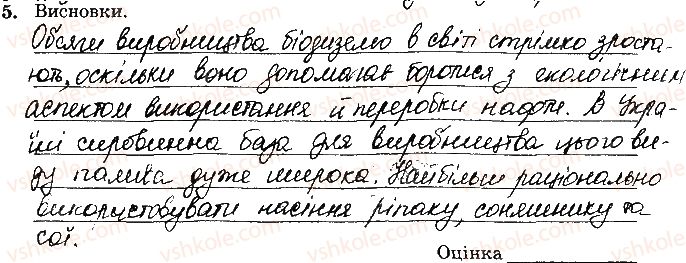 5. Висновки.
Обсяги виробництва біодизелю в світі стрімко зроста-
ють, оскільки воно допомагає боротися з екологічним
аспектом використання й переробки нафти. В Укра-
їні сировинна база для виробництва цього ви-
ду палива дуже широка. Найбільш раціонально
використовувати насіння ріпаку, соняшнику та
сої.
Оцінка